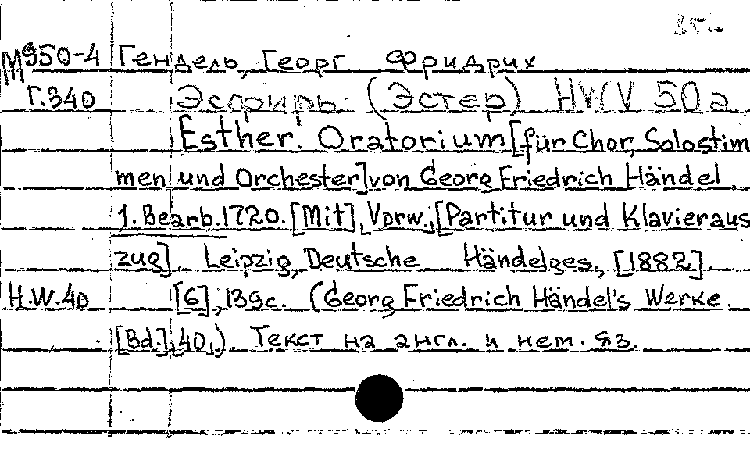 М950-4 Гендель, Георг Фридрих
Г.340 Эсфирь (Эстер) HWV 50a
Esther. Oratorium [für Chor, Solostim
men und Orchester] von Georg Friedrich Händel
1. Bearb. 1720. [Mit], Vorw.; [Partitur und Klavieraus
zug]. Leipzig, Deutsche Händelges., [1882].
H.W.40 [6], 139c. (Georg Friedrich Händel's Werke.
[Bd.], 40,). Текст на англ. и нем. яз.